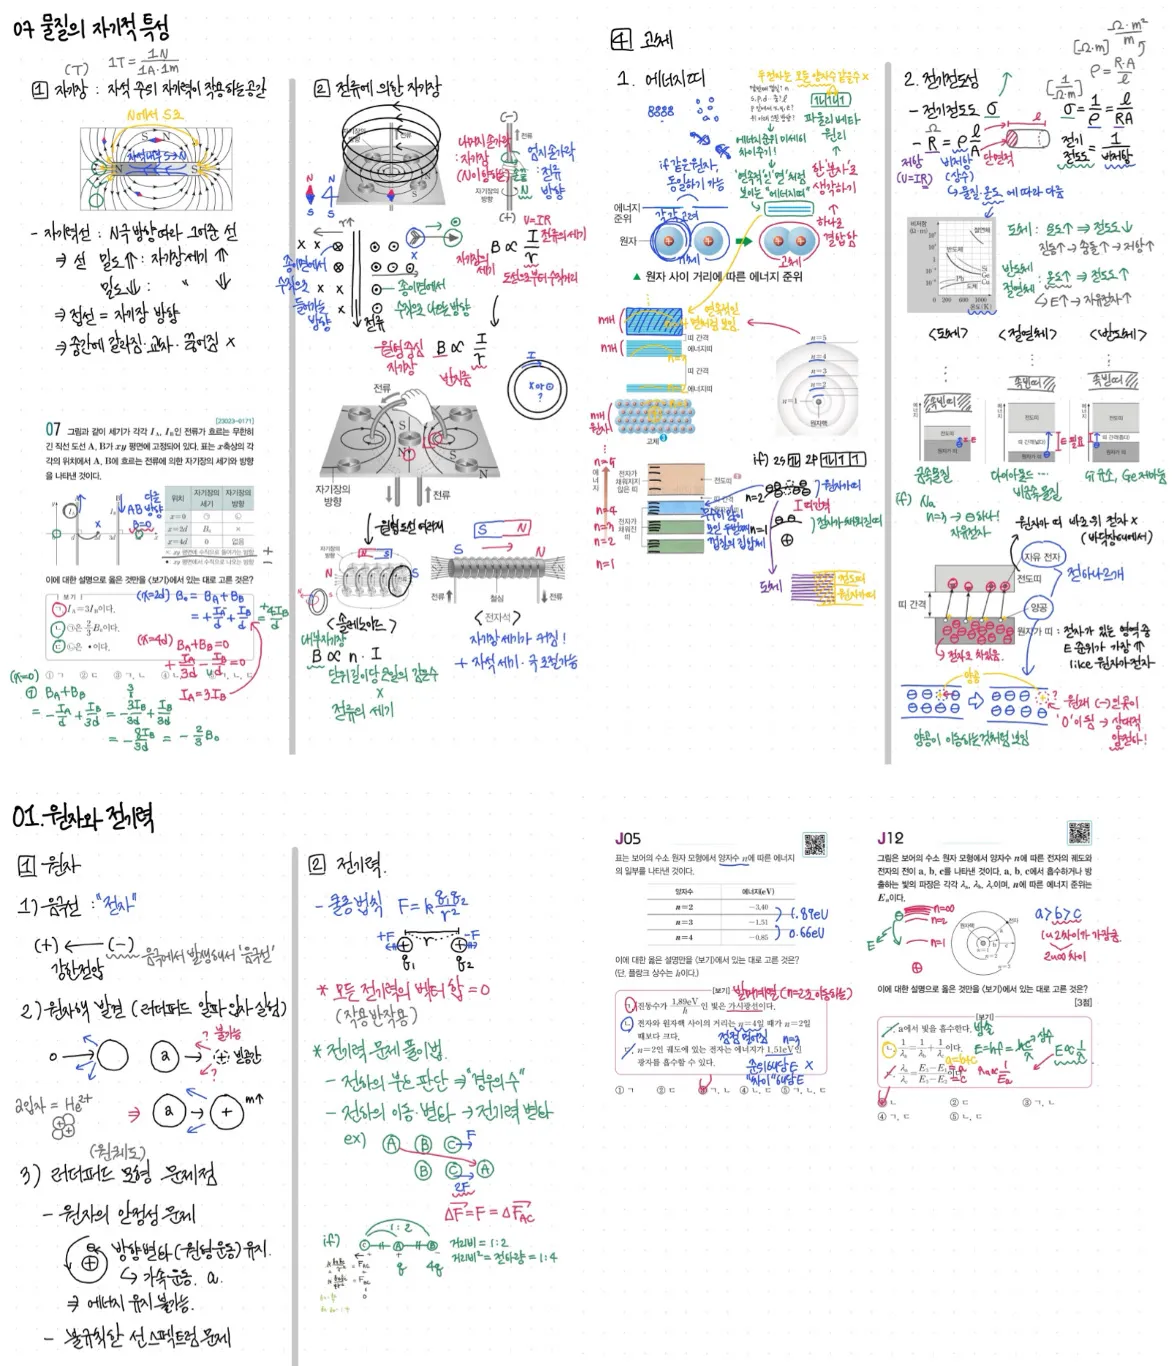 07 물질의 자기적 특성
(T) 1T = 1N / 1A·1m
1 자기장 : 자석 주위 자기력이 작용하는 공간
N에서 S로
자석내부 S→N
- 자기력선 : N극 방향 따라 그어준 선
⇒ 선 밀도⇑ : 자기장세기 ⇑
밀도⇓ : 〃 ⇓
⇒ 접선 = 자기장 방향
⇒ 중간에 갈라짐·교차·끊어짐 X
[23023-0171]
07 그림과 같이 세기가 각각 I_A, I_B인 전류가 흐르는 무한히
긴 직선 도선 A, B가 xy 평면에 고정되어 있다. 표는 x축상의 각
각의 위치에서 A, B에 흐르는 전류에 의한 자기장의 세기와 방향
을 나타낸 것이다.
위치 자기장의 세기 자기장의 방향
x=0 ㉠ ㉡
x=2d B₀ ×
x=4d 0 없음
×: xy 평면에 수직으로 들어가는 방향
•: xy 평면에서 수직으로 나오는 방향
이에 대한 설명으로 옳은 것만을 <보기>에서 있는 대로 고른 것은?
보기
ㄱ. I_A=3I_B이다.
ㄴ. ㉠은 2/3 B₀이다.
ㄷ. ㉡은 •이다.
(x=2d) B₀ = B_A + B_B
(x=4d) B_A + B_B = 0
I_A = 3I_B
(x=0)
① B_A + B_B
= -I_A/d + I_B/3d = -3I_B/d + I_B/3d
= -8I_B/3d = -2/3 B₀
2 전류에 의한 자기장
(-)
전류
나머지 손가락
: 자기장
(N이 향하는)
엄지손가락
: 전류
방향
자기장의
방향
(+)
V=IR
B ∝ I/r
전류의 세기
자기장의
세기
도선으로부터 수직거리
종이면에서
수직으로
들어가는
방향
종이면에서
수직으로 나오는 방향
전류
- 원형 중심
자기장
B ∝ I/r
반지름
전류
자기장의
방향
전류
- 원형도선 여러개
자기장의
방향
<솔레노이드>
내부자기장
B ∝ n · I
단위길이당 코일의 감은수
×
전류의 세기
전류
철심
전류
<전자석>
자기장 세기가 커짐!
+ 자석 세기·극 조절가능
4 고체
1. 에너지띠
두 전자는 모든 양자수 같을 수 X
파울리 배타
원리
if 같은 원자,
동일하기 가능
에너지준위 미세히
차이 주기!
"연속적인 면"처럼
보이는 "에너지띠"
한 분자로
생각하기
하나로
결합함
에너지
준위
각각 고려
원자
기체
고체
▲ 원자 사이 거리에 따른 에너지 준위
연속적인
면처럼 보임
n개
띠 간격
n개
에너지띠
띠 간격
에너지띠
n개
원자
고체
n=5
n=4
n=3
n=2
n=1
원자핵
에너지
전자가
채워지지
않은 띠
전자가
채워진
띠
전도띠
if) 2s 2p
n=2
n=1
원자가띠
띠간격
전자가 채워진띠
도체
전도띠
원자가띠
2. 전기전도성
[Ω·m] Ω·m²/m
ρ = R·A/ℓ
- 전기전도도 σ
[1/Ω·m]
σ = 1/ρ = ℓ/RA
- R = ρ ℓ/A
저항
(V=IR)
비저항
(상수)
단면적
전기
전도도 = 1/비저항
↳ 물질·온도에 따라 다름
비저항
(Ω·m)
절연체
반도체
Si
Ge
도체
0 200 600 1000
온도(K)
도체 : 온도↑ → 전도도↓
진동↑ → 충돌↑ → 저항↑
반도체
절연체 : 온도↑ → 전도도↑
↳ E↑ → 자유전자↑
<도체> <절연체> <반도체>
속빈띠
속빈띠
속빈띠
전도띠
원자가 띠
전도띠
띠 간격(넓다)
원자가 띠
E 필요
전도띠
띠 간격(좁다)
원자가 띠
금속물질
다이아몬드 …
비금속 물질
Si 규소, Ge 저마늄
if) Na
n=3 → ⊖ 하나!
자유전자
- 원자가 띠 바로 위 전자 X
(바닥상태에서)
자유 전자
전도띠
전하나르개
띠 간격
양공
원자가 띠 : 전자가 있는 영역 중
E준위가 가장 ⇑
like 원자가전자
전자로 차있음
양공
원래 (-)인 곳이
'0'이 됨 → 상대적
양전하!
양공이 이동하는것처럼 보임
01. 원자와 전기력
1 원자
1) 음극선 : "전자"
(+) ← (-) 음극에서 발생해서 '음극선'
강한전압
2) 원자핵 발견 (러더퍼드 알파 입자 실험)
? 불가능
빈공간
α입자 = He²⁺
m↑
(-원궤도)
3) 러더퍼드 모형 문제점
- 원자의 안정성 문제
방향변화 (-원형운동) 유지.
↳ 가속운동. a.
⇒ 에너지 유지 불가능.
- 불규칙한 선스펙트럼 문제
2 전기력.
- 쿨롱법칙 F = k q₁q₂/r²
+F r -F
q₁ q₂
* 모든 전기력의 벡터 합 = 0
(작용반작용)
* 전기력 문제 풀이법.
- 전하의 부호 판단 ⇒ "경우의 수"
- 전하의 이동·변화 → 전기력 변화
ex) A B C F
B C A
2F
ΔF = F = ΔF_AC
if) 1 : 2
C A B
q 4q
거리비 = 1:2
거리비² = 전하량 = 1:4
J05
표는 보어의 수소 원자 모형에서 양자수 n에 따른 에너지
의 일부를 나타낸 것이다.
양자수 에너지(eV)
n=2 -3.40
n=3 -1.51
n=4 -0.85
1.89eV
0.66eV
이에 대한 옳은 설명만을 <보기>에서 있는 대로 고른 것은?
(단, 플랑크 상수는 h이다.)
[보기] 발머계열 (n=2로 이동하는)
ㄱ. 진동수가 1.89eV/h인 빛은 가시광선이다.
ㄴ. 전자와 원자핵 사이의 거리는 n=4일 때가 n=2일
때보다 크다.
점점 멀어짐 n=3
ㄷ. n=2인 궤도에 있는 전자는 에너지가 1.51eV인
광자를 흡수할 수 있다.
준위 해당 E X
"차이" 해당 E
① ㄱ ② ㄷ ③ ㄱ, ㄴ ④ ㄴ, ㄷ ⑤ ㄱ, ㄴ, ㄷ
J12
그림은 보어의 수소 원자 모형에서 양자수 n에 따른 전자의 궤도와
전자의 전이 a, b, c를 나타낸 것이다. a, b, c에서 흡수하거나 방
출하는 빛의 파장은 각각 λa, λb, λc이며, n에 따른 에너지 준위는
Eₙ이다.
n=∞
n=2
n=1
E
원자핵
전자
a>b>c
2와∞차이
이에 대한 설명으로 옳은 것만을 <보기>에서 있는 대로 고른 것은?
[3점]
[보기]
ㄱ. a에서 빛을 흡수한다. 방출
ㄴ. 1/λa = 1/λb + 1/λc 이다.
a=b+c
E=hf=hc/λ 상수
E∝1/λ
① ㄴ ② ㄷ ③ ㄱ, ㄴ
④ ㄱ, ㄷ ⑤ ㄴ, ㄷ